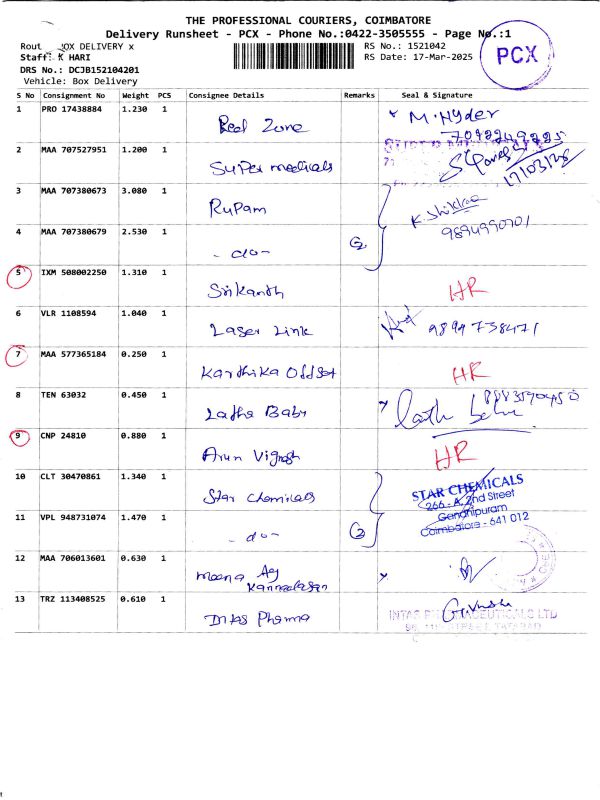 THE PROFESSIONAL COURIERS, COIMBATORE
Delivery Runsheet - PCX - Phone No.:0422-3505555 - Page No.:1
Rout OX DELIVERY x
RS No.: 1521042
Staff: K HARI
RS Date: 17-Mar-2025
PCX
DRS No.: DCJB152104201
Vehicle: Box Delivery
S No Consignment No Weight PCS Consignee Details Remarks Seal & Signature
1 PRO 17438884 1.230 1 Reel Zone M. Nyder
7092249225
2 MAA 707527951 1.200 1 Super medicals
17/03/25
3 MAA 707380673 3.080 1 Rupam K. Shiklaa
9894990701
4 MAA 707380679 2.530 1 - do - 2
5 IXM 508002250 1.310 1 Srikanth HR
6 VLR 1108594 1.040 1 Laser Link 9894738471
7 MAA 577365184 0.250 1 Karthika Offset HR
8 TEN 63032 0.450 1 Latha Babu
8883590450
9 CNP 24810 0.880 1 Arun Vignesh HR
10 CLT 30470861 1.340 1 Star Chemicals STAR CHEMICALS
266 - A, 2nd Street
Gandhipuram
Coimbatore - 641 012
11 VPL 948731074 1.470 1 - do - 2
12 MAA 706013601 0.630 1 Meena Ag
Kannadasan
13 TRZ 113408525 0.610 1 Intas Pharma
INTAS PHARMACEUTICALS LTD